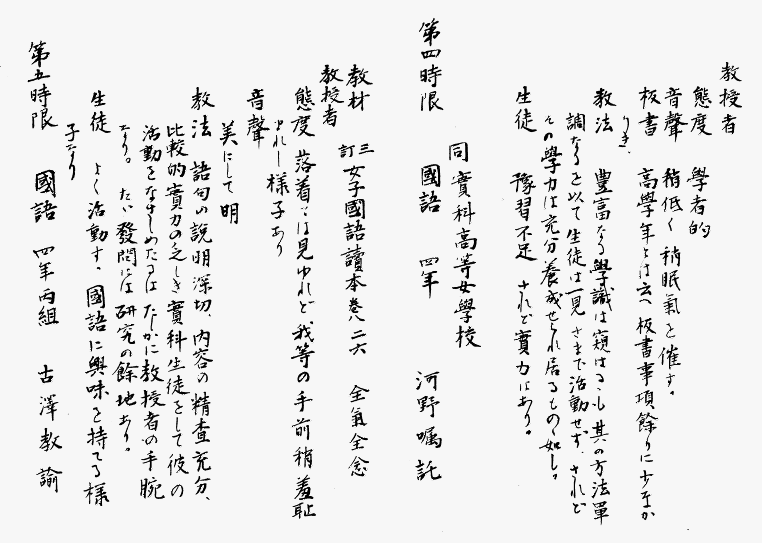 教授者
態度　學者的
音聲　稍低く 稍眠氣を催す。
板書　高學年とは云へ 板書事項餘りに少なか
りき、
教法　豊富なる學識は窺はるゝも 其の方法單
調なるを以て生徒は一見 さまで活動せず、されど
その學力は充分養成せられ居るものゝ如し。
生徒　豫習不足　されど實力はあり。
第四時限　同 實科高等女學校
國語　四年　河野囑託
教材　三訂 女子國語讀本卷八 二六　全氣全念
教授者
態度　落着とは見ゆれど、我等の手前稍羞耻
われし様子あり
音聲　美にして 明
教法　語句の説明深切、内容の精査充分、
比較的實力の乏しき實科生徒をして彼の
活動をなさしめたるは たしかに教授者の手腕
なり。 たゞ發問には研究の餘地あり。
生徒　よく活動す。國語に興味を持てる様
子なり
第五時限　國語　四年丙組　古澤教諭